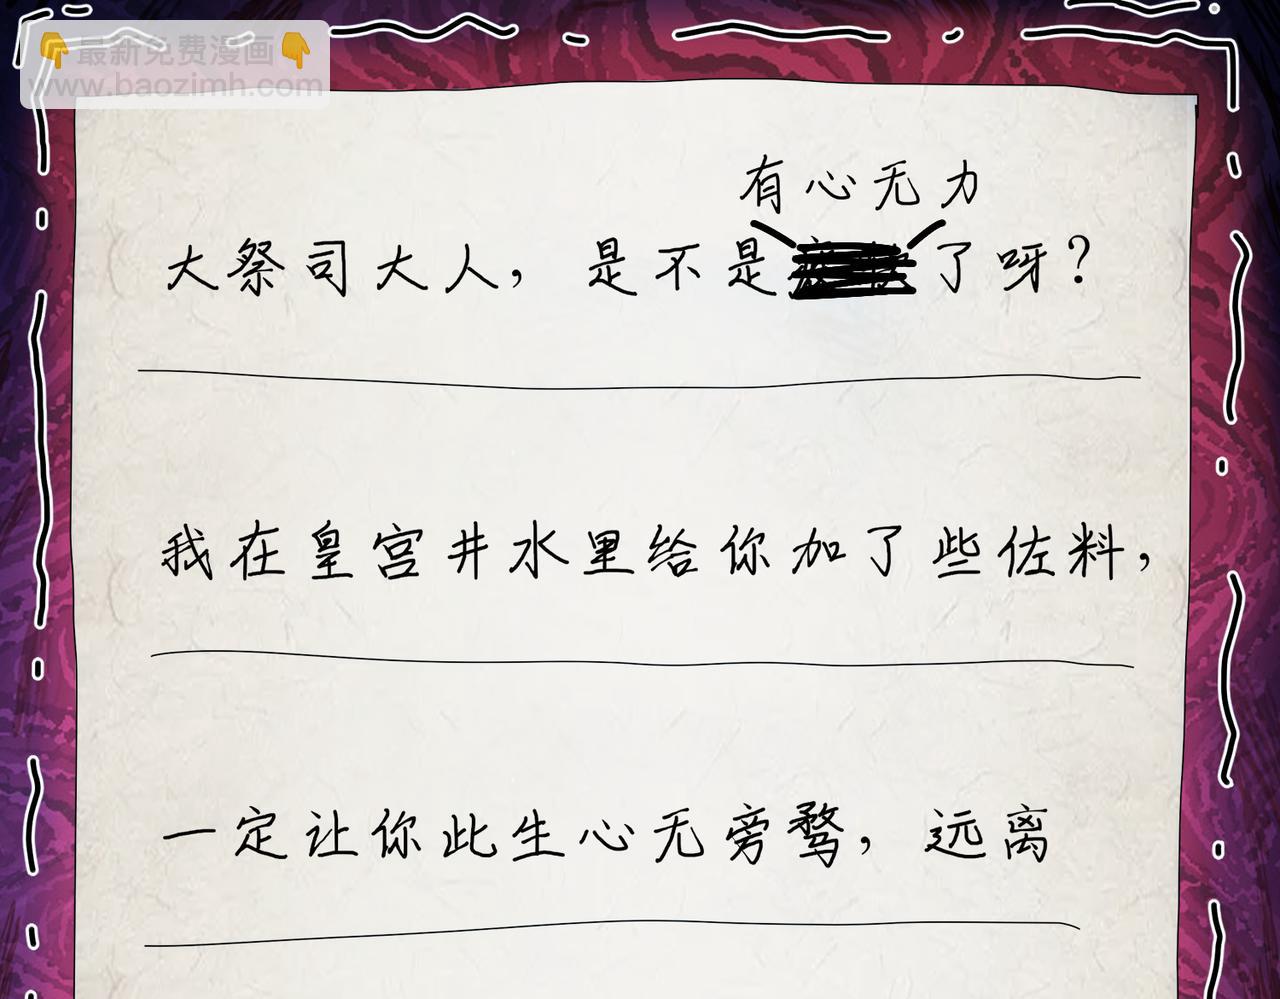 👇最新免费漫画👇
www.baozimh.com
有心无力
大祭司大人，是不是了呀？
我在皇宫井水里给你加了些佐料，
一定让你此生心无旁骛，远离